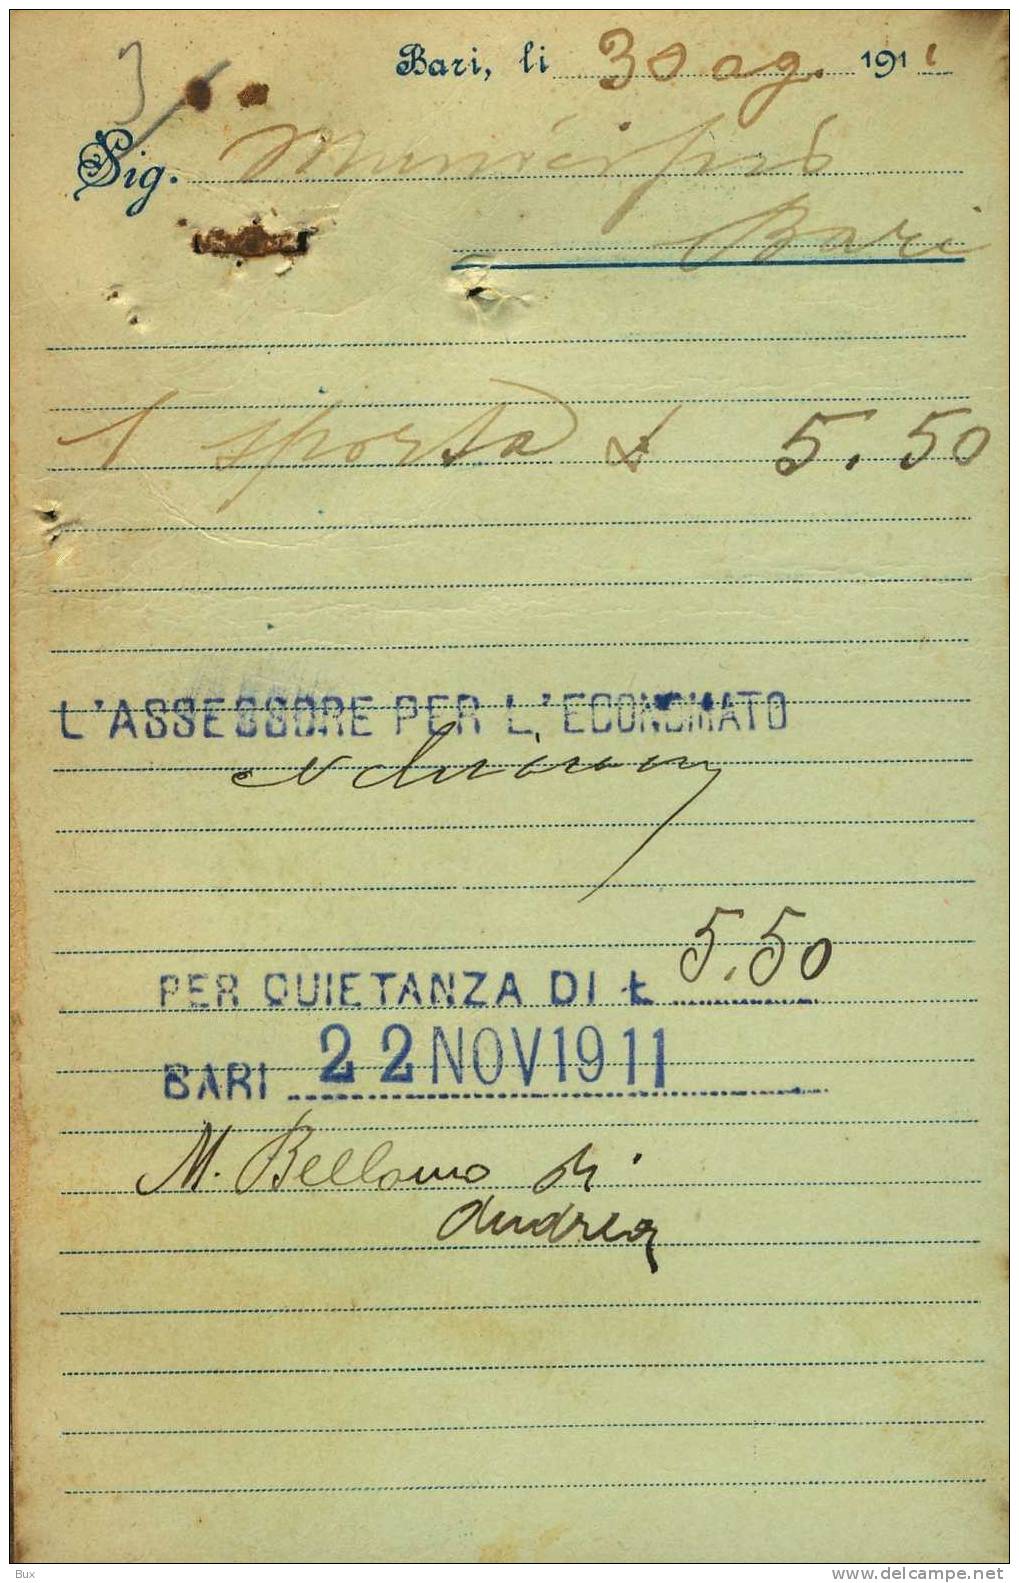 3
Bari, li 30 ag. 1911
Sig. Municipio
Bari
1 sporta £ 5.50
L'ASSESSORE PER L'ECONOMATO
PER QUIETANZA DI £ 5.50
BARI 22 NOV 1911
M. Bellomo di
Andrea
Bux
www.delcampe.net